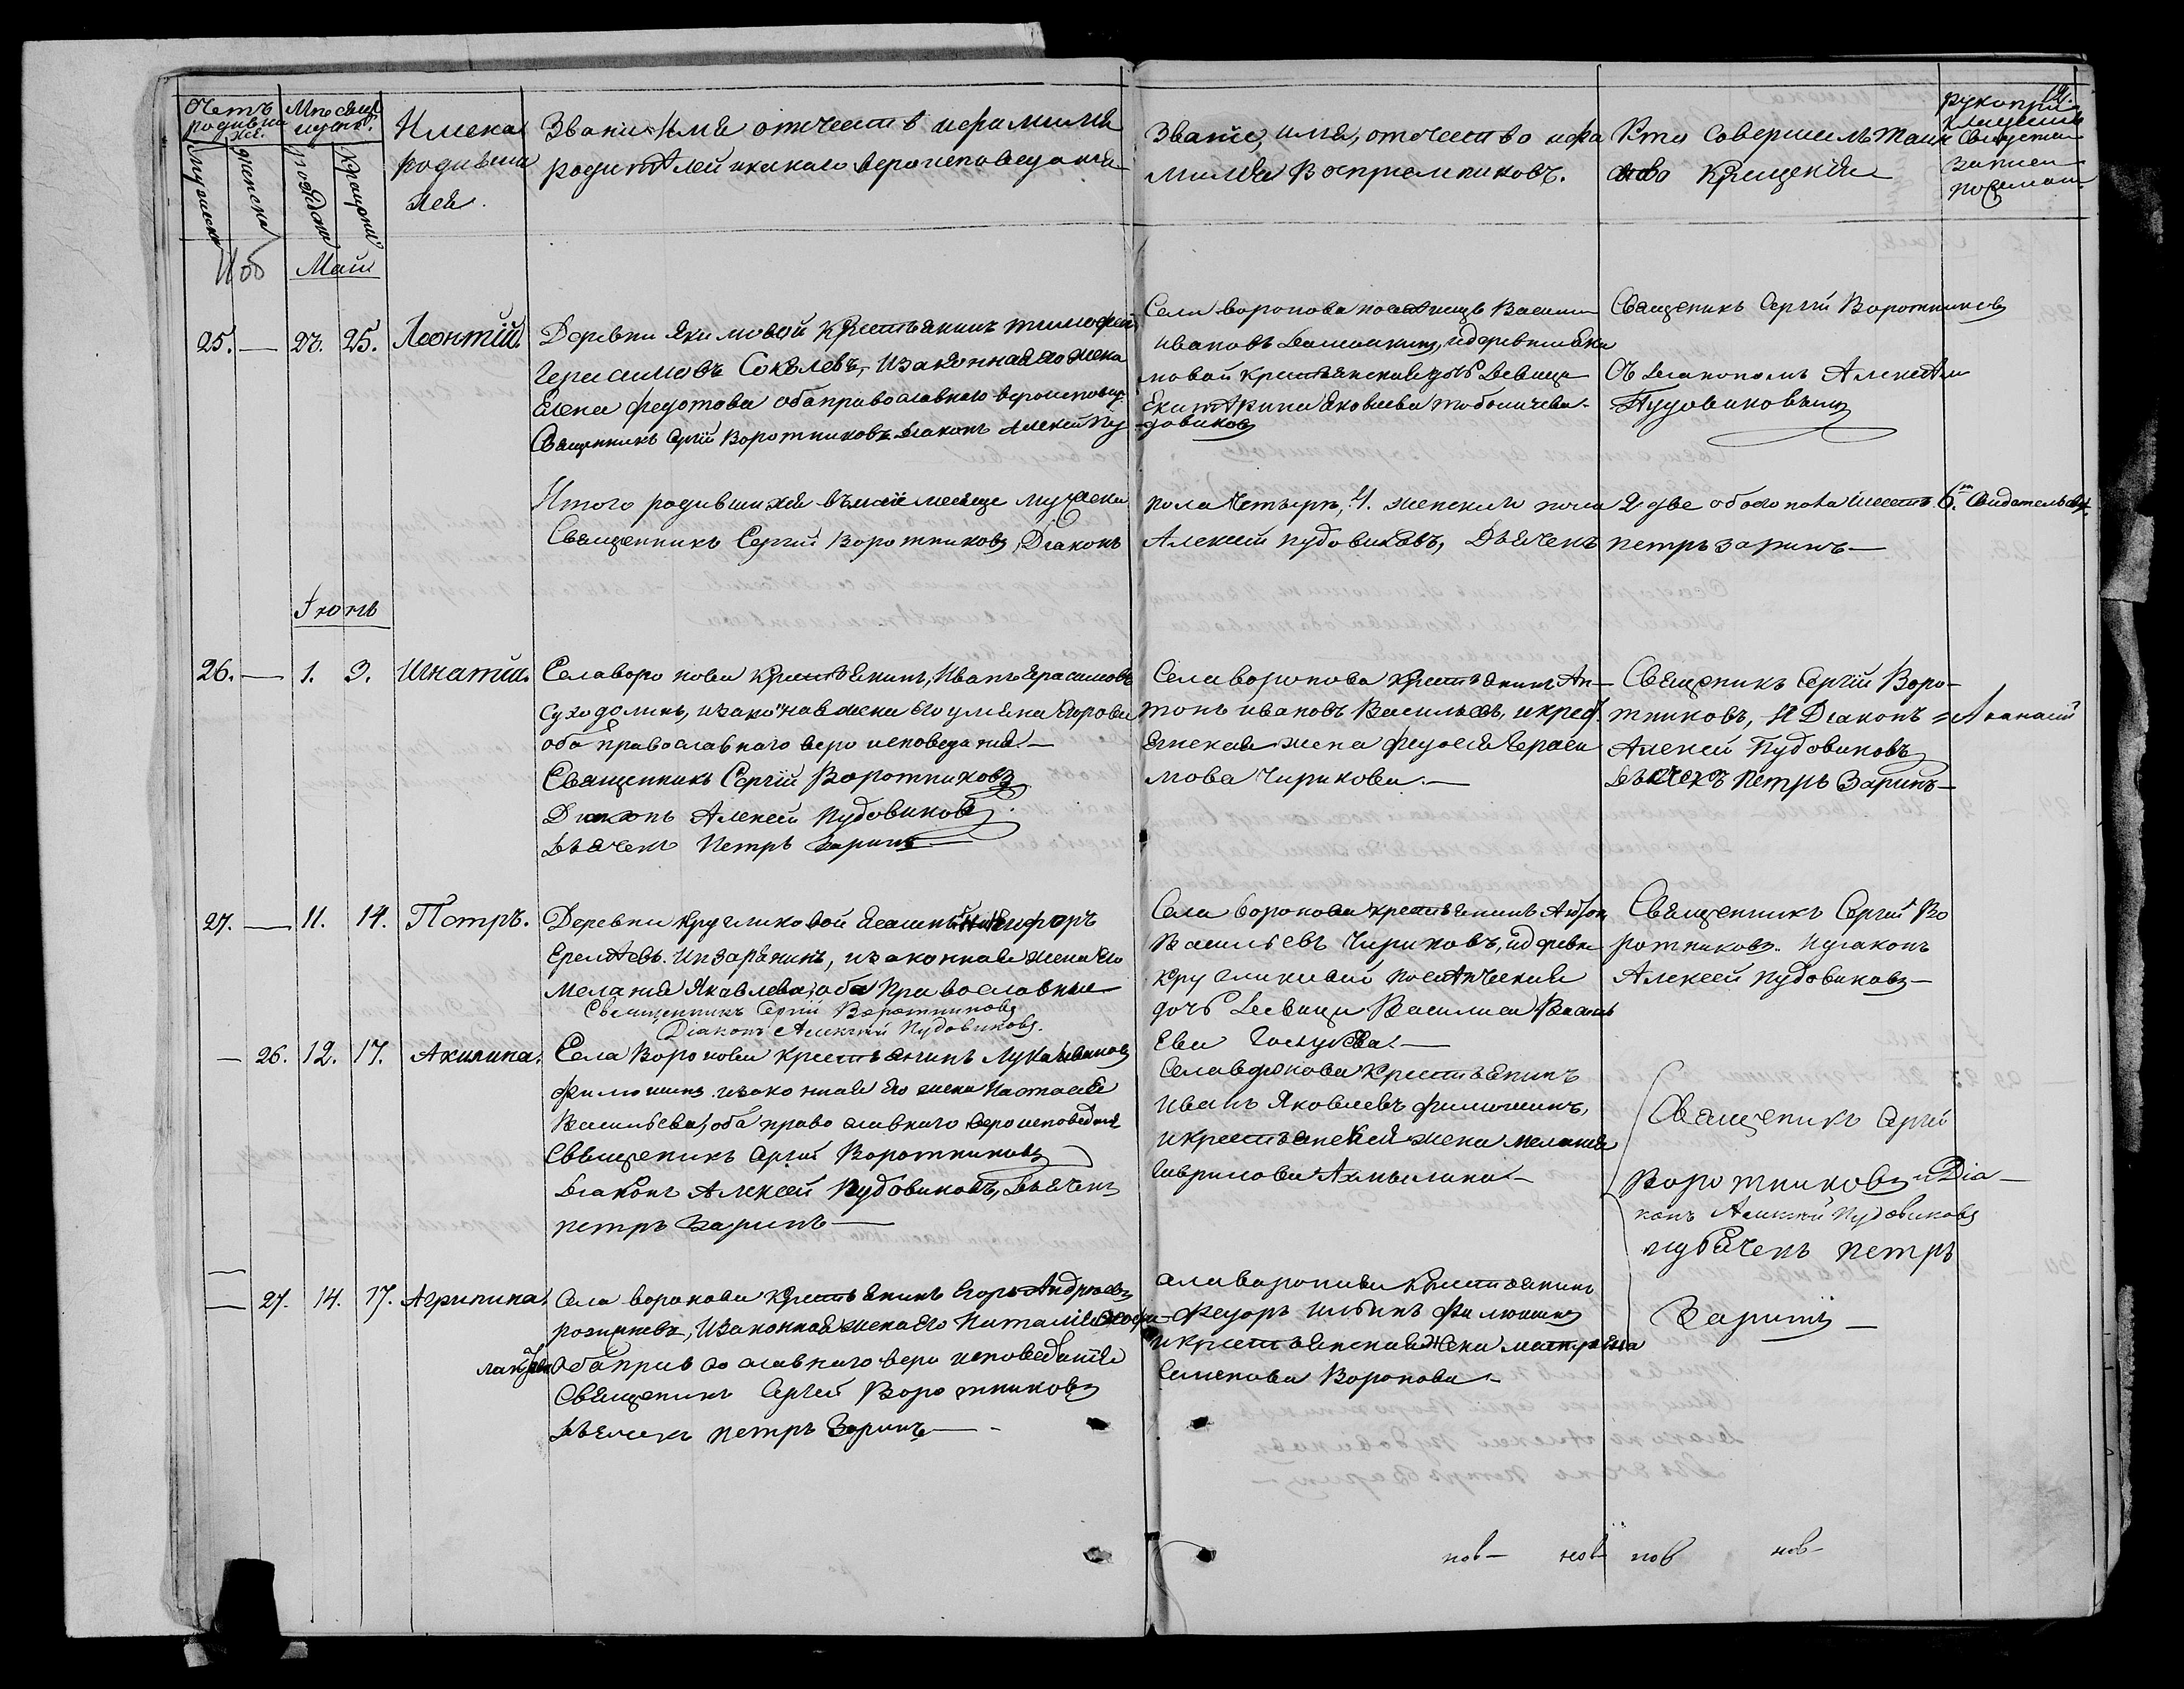 Счетъ родивши хсе.
Месяцъ и день.
Имена родивши хся.
Званіе Имя отечеств и фамилия
родителей и какаго вероисповеданія
Званіе, имя, отечество и фа
милия Восприемниковъ.
Кто Совершилъ Таин
ство Крещения
рукопри
Свидетел
записи
по желан
19.
мужеска
женска
рождения
крещения
Май
25. — 23. 25. Леонтій.
Деревни Екимовой Крестьянинъ тимофей
Герасимовъ Соколевъ, и законная его жена
Елена федотова оба православнаго вероисповед
Священникъ Сергій Воротниковъ Діаконъ Алексей Пу
Села воронова Василий
ивановъ и деревни Еки
мовой Крестьянская дочь Девица
Екатерина Яковлева
довиковъ
Священикъ Сергій Воротниковъ
Съ Діакономъ Алексеем
Пудовиковымъ
Итого родившихся въ маіе месяце мужеска
пола Четыре, 4. женскаго пола 2 две обоего пола шесть 6. Свидетельств.
Священникъ Сергій Воротниковъ, Діаконъ
Алексей пудовиковъ, Дьячекъ петръ заринъ —
Іюнь
26. — 1. 3. Игнатий.
Села воронова Крестьянинъ, Иванъ Ерасимовъ
Суходолинъ, и законная жена его ульяна Егорова
оба православнаго вероисповедания —
Священникъ Сергій Воротниковъ
Диаконъ Алексей Пудовиковъ
Дьячекъ Петръ Заринъ
Села воронова крестьянинъ Ан-
тонъ ивановъ Васильевъ, и крест
Енская жена федосея Гераси
мова Чирикова —
Священикъ Сергій Воро-
тниковъ, И Діаконъ =
Алексей Пудовиковъ
Дьячекъ Петръ Заринъ —
27. — 11. 14. Петръ.
Деревни Кругликовой Никифоръ
Еремеевъ. и законная жена его
Мелания Яковлева, оба Православные
Священникъ Сергій Воротниковъ
Діаконъ Алексей Пудовиковъ.
Села воронова крестьянинъ Антон
Васильевъ Чириковъ, и деревни
Кругликовой
дочь Девица Василиса Василь
Ева Голубева —
Священникъ Сергий Во
ротниковъ. и діаконъ
Алексей пудовиковъ —
— 26. 12. 17. Акилина.
Села Воронова Крестьянинъ Лука Ивановъ
Филюшинъ и законная его жена Настасья
Васильева, оба православнаго вероисповедания
Священикъ Сергій Воротниковъ
Діаконъ Алексей Пудовиковъ, Дьячекъ
петръ Заринъ —
Села воронова Крестьянинъ
Иванъ Яковлевъ филюшинъ,
и крестьянская жена мелания
Гаврилова —
Священикъ Сергій
Воротниковъ и Діа-
конъ Алексей Пудовиковъ
и дьячекъ петръ
Заринъ —
— 27. 14. 17. Агрипина.
Села воронова Крестьянинъ Егоръ Андреевъ
и законная жена его Наталия
оба православнаго вероисповедания
Священикъ Сергей Воротниковъ
Дьячекъ петръ Заринъ —
Села воронова Крестьянинъ
Федоръ ильинъ Филюшинъ
и крестьянская жена матрена
Семенова Воронова —
нов- нов- нов нов-